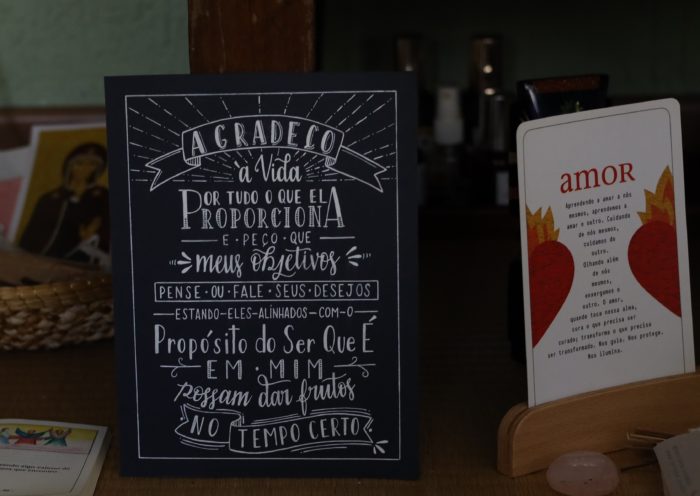 AGRADEÇO
à Vida
POR TUDO O QUE ELA
PROPORCIONA
E · PEÇO · QUE
meus objetivos
PENSE · OU · FALE · SEUS · DESEJOS
ESTANDO-ELES-ALINHADOS-COM-O
Propósito do Ser Que É
EM · MIM
possam dar frutos
NO TEMPO CERTO
amor
Aprendendo a amar a nós
mesmos, aprendemos a
amar o outro. Cuidando
de nós mesmos,
cuidamos do
outro.
Olhando além
de nós
mesmos,
enxergamos o
outro. O amor,
quando toca nossa alma,
cura o que precisa ser
curado; transforma o que precisa
ser transformado. Nos guia. Nos protege.
Nos ilumina.